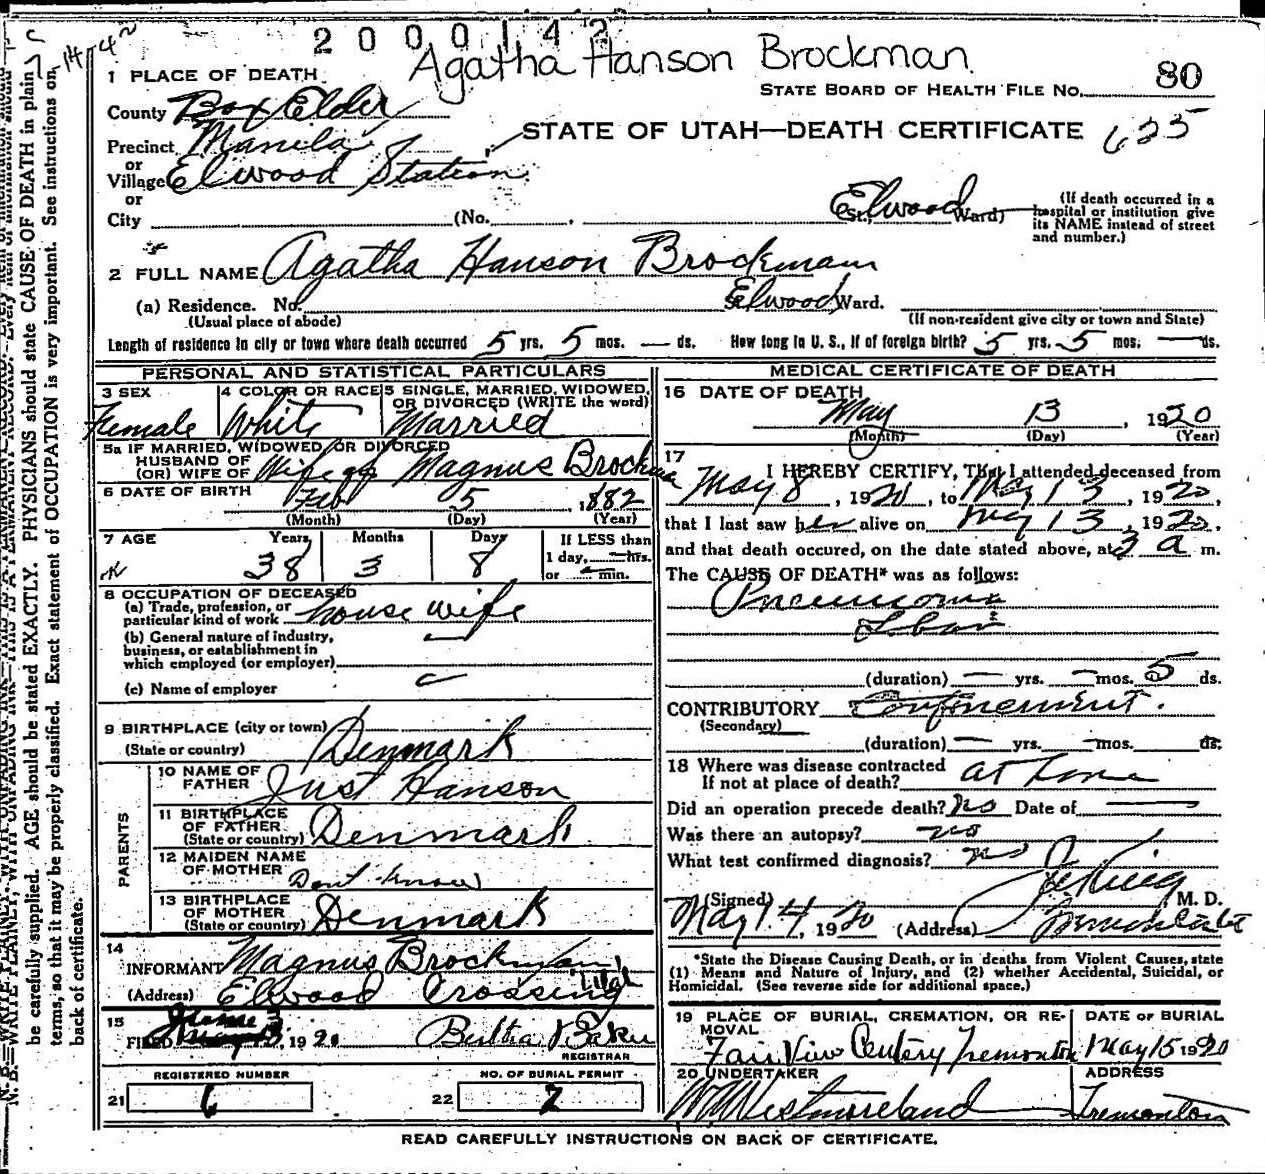 2000142
Agatha Hanson Brockman
1 PLACE OF DEATH
STATE BOARD OF HEALTH FILE NO. 80
County Box Elder
STATE OF UTAH—DEATH CERTIFICATE 625
Precinct Manila
or
Village Elwood Station
or
City (No. St., Elwood Ward) (If death occurred in a hospital or institution give its NAME instead of street and number.)
2 FULL NAME Agatha Hanson Brockman
(a) Residence. No. St. Elwood Ward.
(Usual place of abode) (If non-resident give city or town and State)
Length of residence in city or town where death occurred 5 yrs. 5 mos. — ds. How long in U. S., if of foreign birth? 5 yrs. 5 mos. — ds.
PERSONAL AND STATISTICAL PARTICULARS
3 SEX Female
4 COLOR OR RACE White
5 SINGLE, MARRIED, WIDOWED, OR DIVORCED (WRITE the word) Married
5a IF MARRIED, WIDOWED OR DIVORCED
HUSBAND OF
(OR) WIFE OF Wife of Magnus Brockman
6 DATE OF BIRTH Feb 5, 1882
(Month) (Day) (Year)
7 AGE Years Months Days If LESS than
38 3 8 1 day, — hrs.
or — min.
8 OCCUPATION OF DECEASED
(a) Trade, profession, or
particular kind of work house wife
(b) General nature of industry,
business, or establishment in
which employed (or employer)
(c) Name of employer
9 BIRTHPLACE (city or town)
(State or country) Denmark
PARENTS
10 NAME OF FATHER Just Hanson
11 BIRTHPLACE OF FATHER (State or country) Denmark
12 MAIDEN NAME OF MOTHER Don't know
13 BIRTHPLACE OF MOTHER (State or country) Denmark
14 INFORMANT Magnus Brockman
(Address) Elwood Crossing Utah
15 FILED June 3, 1920 Bertha Baker
REGISTRAR
REGISTERED NUMBER NO. OF BURIAL PERMIT
21 6 22 7
MEDICAL CERTIFICATE OF DEATH
16 DATE OF DEATH
May 13, 1920
(Month) (Day) (Year)
17 I HEREBY CERTIFY, That I attended deceased from
May 8, 1920, to May 13, 1920,
that I last saw her alive on May 13, 1920,
and that death occured, on the date stated above, at 3 a m.
The CAUSE OF DEATH* was as follows:
Pneumonia
Lobar
(duration) — yrs. — mos. 5 ds.
CONTRIBUTORY Confinement.
(Secondary)
(duration) — yrs. — mos. ds.
18 Where was disease contracted
If not at place of death? at home
Did an operation precede death? no Date of —
Was there an autopsy? no
What test confirmed diagnosis? no
(Signed) M. D.
May 14, 1920 (Address) Tremonton
*State the Disease Causing Death, or in deaths from Violent Causes, state
(1) Means and Nature of Injury, and (2) whether Accidental, Suicidal, or
Homicidal. (See reverse side for additional space.)
19 PLACE OF BURIAL, CREMATION, OR REMOVAL DATE OF BURIAL
Fair View Cemtery Tremonton May 15 1920
20 UNDERTAKER ADDRESS
W Westmoreland Tremonton
READ CAREFULLY INSTRUCTIONS ON BACK OF CERTIFICATE.
be carefully supplied. AGE should be stated EXACTLY. PHYSICIANS should state CAUSE OF DEATH in plain
terms, so that it may be properly classified. Exact statement of OCCUPATION is very important. See instructions on
back of certificate.